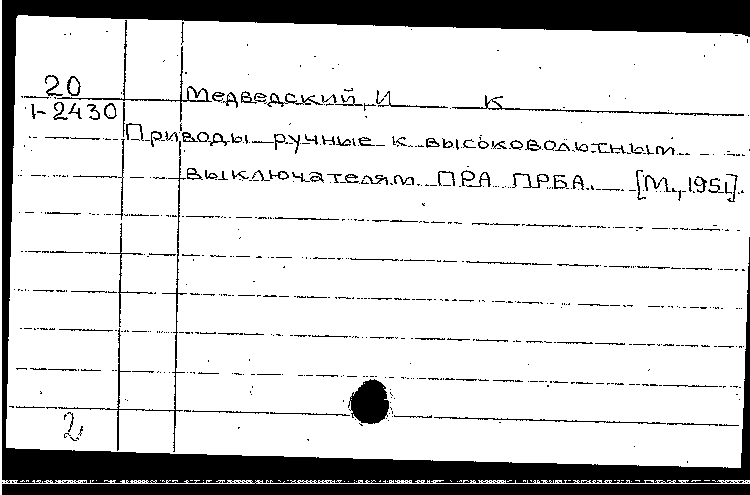 20
1-2430
Медведский, И К
Приводы ручные к высоковольтным
выключателям ПРА ПРБА. [М., 1951].
2